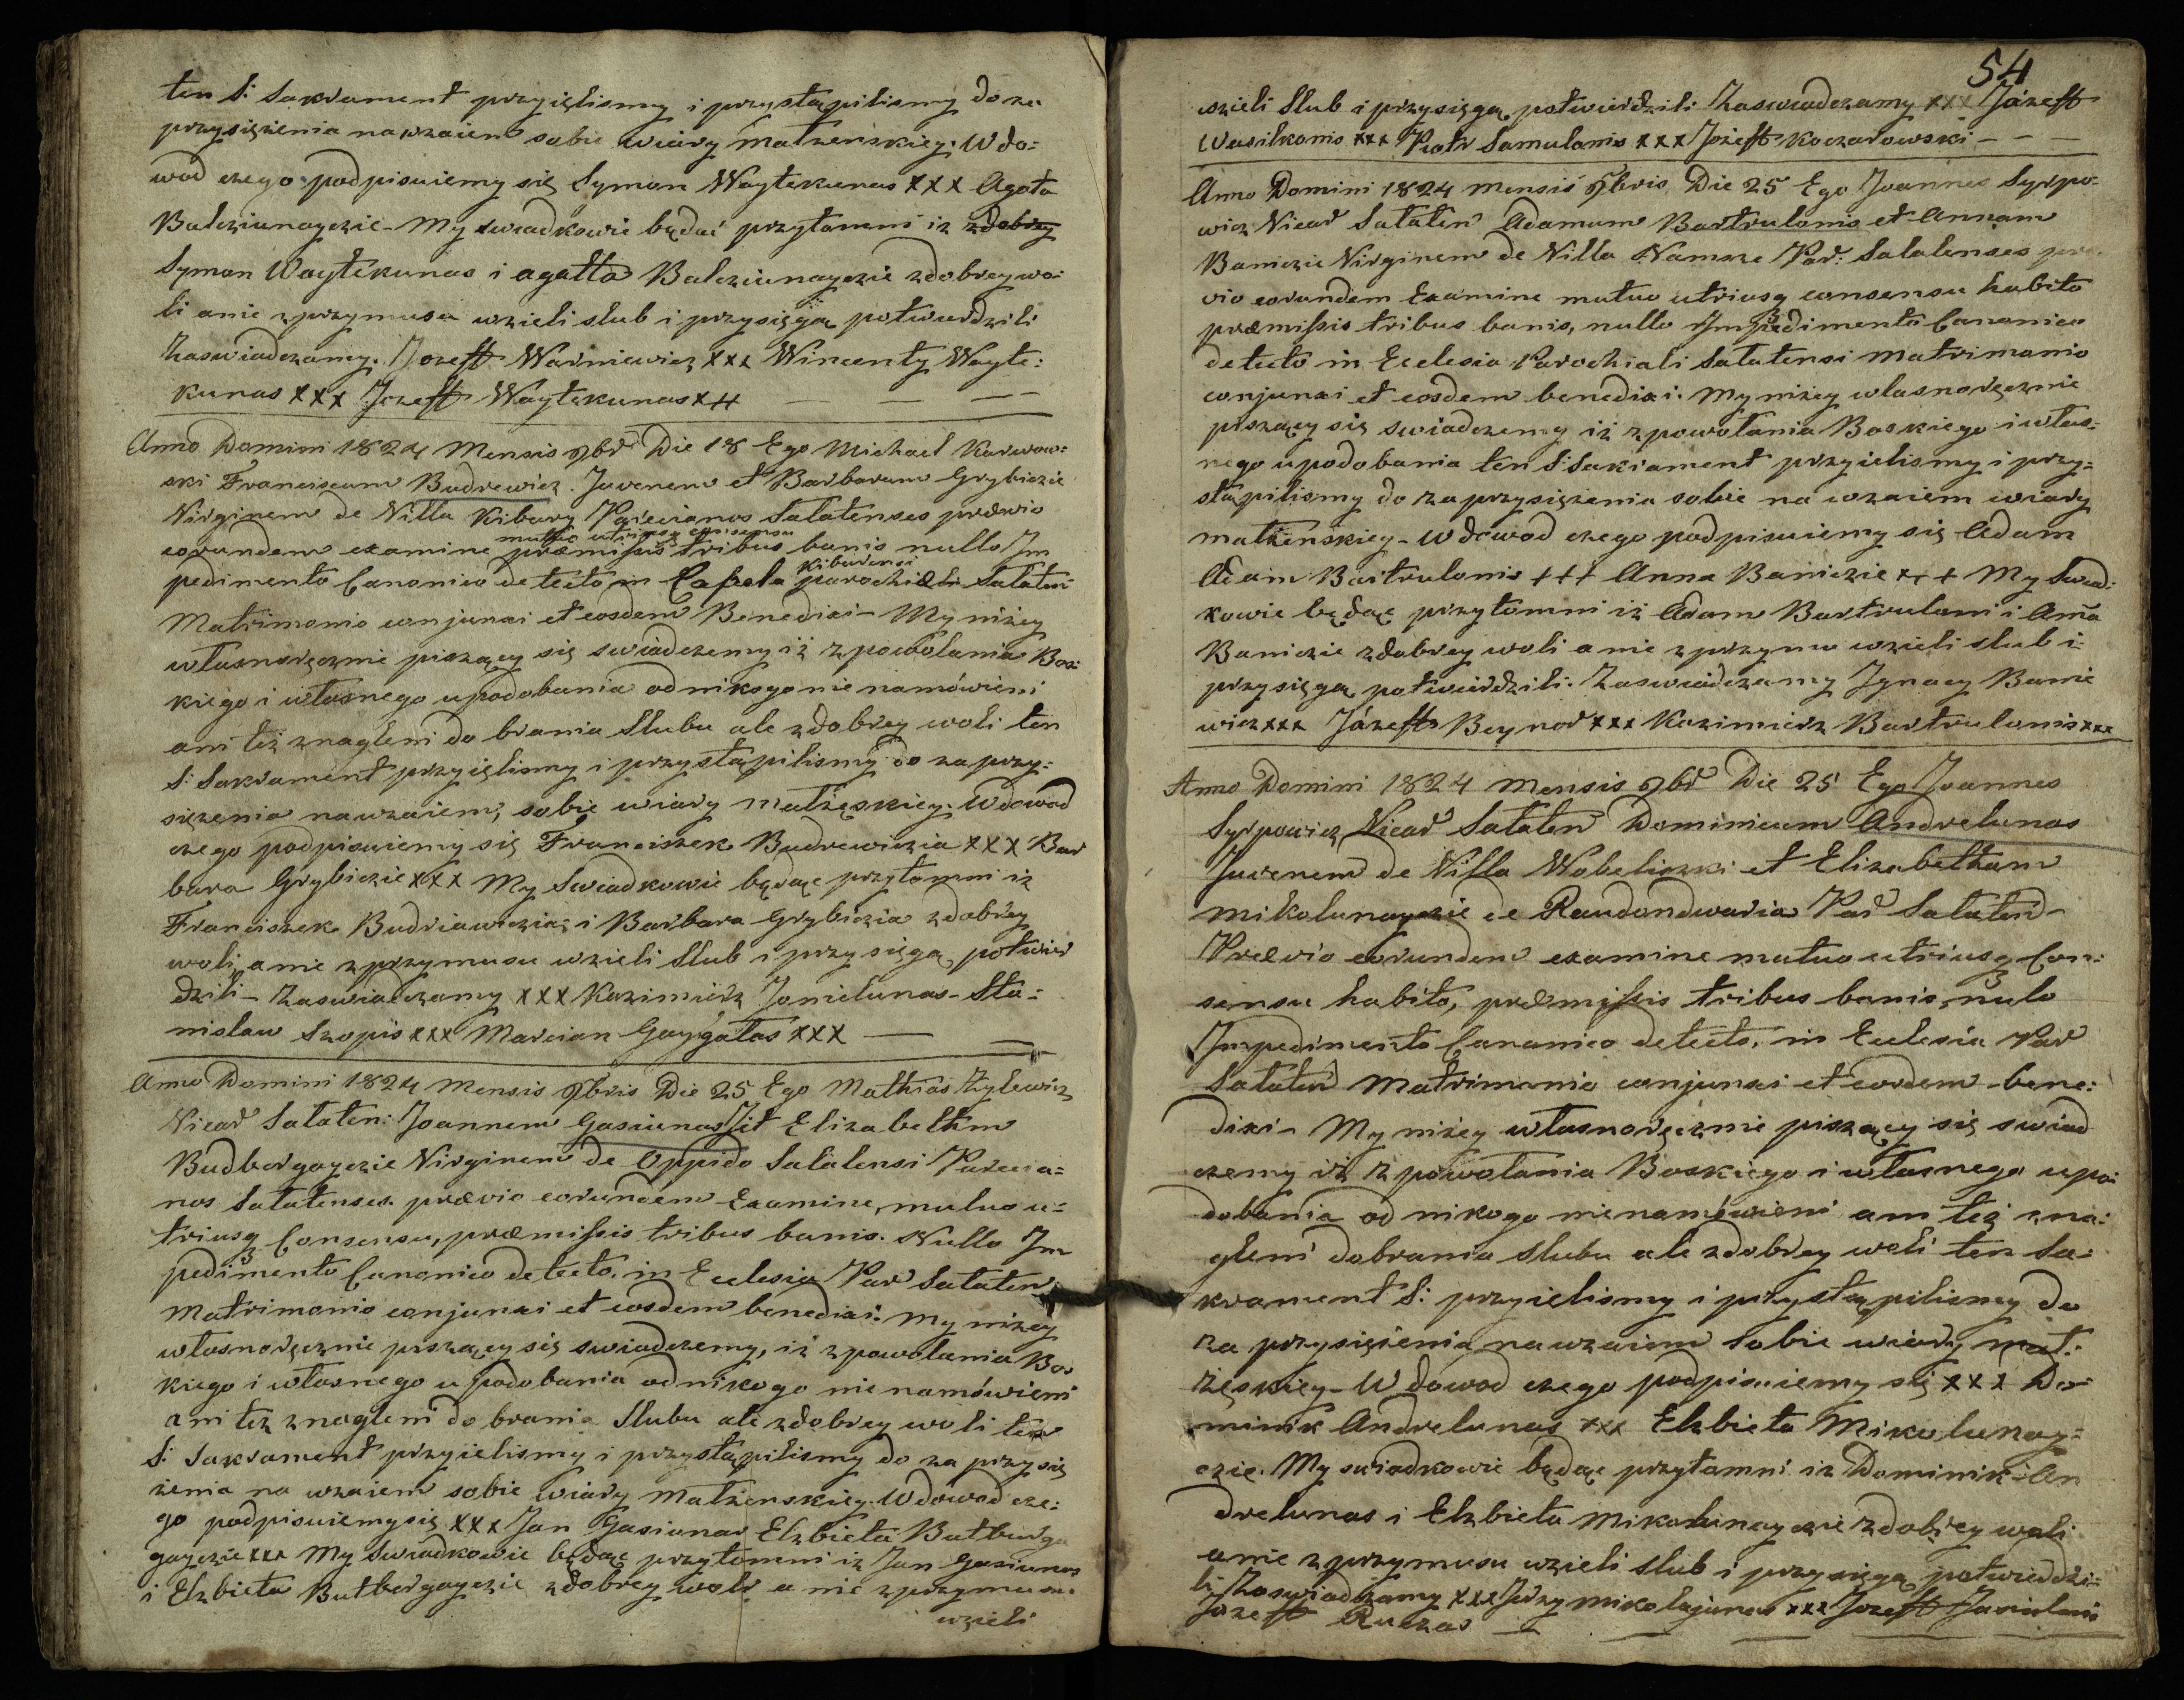 ten S: Sakrament przyięlismy i przystąpilismy do za
przysiężenia nawzaiem sobie wiary matzenskiey. W do:
wod czego podpisuiemy się Symon Woytekunas xxx Agata
Balcziunayczie - My swiadkowie będąć przytomni iz zdobrey
Symon Woytekunas i agatta Balcziunayczie zdobrey wo:
li anie zprzymusu wzieli slub i przysięgą potwierdzili
Zaswiadczamy. Jozeff Warniewicz xxx Wincenty Woyte:
kunas xxx Jozeff Woytekunas x++ — — — —
Anno Domini 1824 Mensis 9br Die 18 Ego Michael Karwow:
ski Franciscum Budrewicz Juvenem et Barbaram Grybiczie
Virginem de Villa Kibury Parecianos Salatenses prævio
mutuo utriusq consensu
eorundem examine præmissis tribus banis nullo Im
Kiburensi
pedimento Canonico detecto in Capela parochiali Salaten
Matrimonio conjunxi et eosdem Benedixi - My niżey
własnoręcznie piszący się swiadczemy iż zpowołania Bos:
kiego i własnego upodobania od nikogo nie namówieni
ani też znagleni do brania Slubu ale zdobrey woli ten
S: Sakrament przyięlismy i przystąpilismy do zaprzy:
siężenia nawzaiem, sobie wiary matzęskiey. W dowod
czego podpisuiemy się Franciszek Budrewiczia xxx Bar
bara Grybiczie xxx My Swiadkowie będąc przytomni iz
Franciszek Budriawiczias i Barbara Grybiczia zdobrey
woli a nie zprzymusu wzieli Slub i przysięgą potwier
dzili - Zaswiadczamy xxx Kazimierz Jonielunas - Sta:
nislaw Szopis xxx Marcian Gaygałas xxx —
Anno Domini 1824 Mensis 9bris Die 25 Ego Mathias Zylewicz
Vicar Salaten: Joannem Gasiunas et Elizabethm
Budbergayczie Virginem de Oppido Salatensi Parecia:
nos Salatenses. prævio eorundem Examine, mutuo u:
triusq Consensu, præmissis tribus banis. Nullo Im
pedimento Canonico detecto. in Ecclesia Par Salaten
Matrimonio conjunxi et eosdem benedixi. My niżey
własnoręcznie piszący się swiadczemy, iż zpowołania Bos
kiego i własnego upodobania od nikogo nie namówieni
ani też znagleni do brania Slubu ale zdobrey woli ten
S: Sakrament przyielismy i przystąpilismy do zaprzysię
żenia na wzaiem sobie wiary Matzenskiey. W dowod cze:
go podpisuiemysię xxx Jan Gasiunas Elzbieta Butburga
gayczie xxx My Swiadkowie będąc przytomni iz Jan Gasiunas
i Elzbieta Butbergayczie zdobrey woli a nie zprzymusu
wzieli
54
wzieli Slub i przysięgą potwierdzili Zaswiadczamy xxx Józeff
Wasilkonis xxx Piotr Samulonis xxx Jozeff Koczarowski - - —
Anno Domini 1824 mensis 9bris Die 25 Ego Joannes Syrpo:
wicz Vicar Salaten Adamum Bartrulonis et Annam
Baniczie Virginem de Villa Namsze Par: Salatenses præ
vio eorundem Examine mutuo utriusq consensu habito
præmissis tribus banis, nullo Impedimento Canonico
detecto in Ecclesia Parochiali Salatensi Matrimonio
conjunxi et eosdem benedixi. My niżey własnoręcznie
piszący się swiadczemy iż zpowołania Boskiego i włas:
nego upodobania ten S: Sakrament przyielismy i przy:
stąpilismy do zaprzysiężenia sobie na wzaiem wiary
matzenskiey - W dowod czego podpisuiemy się Adam
Adam Bartrulonis +++ Anna Baniczie x++ My Swiad:
kowie będąc przytomni iż Adam Bartruloni i Anna
Baniczie zdobrey woli a nie zprzymu wzieli slub i
przysięgą potwierdzili. Zaswiadczamy Ignacy Banie
wicz xxx Józeff Beynor xxx Kazimierz Bartrulonis xxx
Anno Domini 1824 Mensis 9br Die 25 Ego Joannes
Syrpowicz Vicar Salaten Dominicum Andrelunas
Juvenem de Villa Wobeliszki et Elizabetham
Mikolunayczie de Raudondwaria Par Salaten -
Prævio eorundem examine mutuo utriusq Con:
sensu habito, præmissis tribus banis, nulo
Impedimento Canonico detecto, in Eclesia Par
Salaten Matrimonio conjunxi et eosdem bene:
dixi - My niżey własnoręcznie piszący się swiad
czemy iż zpowołania Boskiego i własnego upo:
dobania od nikogo nienamówieni ani też zna:
gleni dobrania Slubu ale zdobrey woli ten Sa:
krament S: przyielismy i przystąpilismy do
za przysiężenia nawzaiem Sobie wiary mat:
zęskiey - W dowod czego podpisuiemy się xxx Do:
minik Andrelunas xxx Elzbieta Mikolunay:
czie. My swiadkowie będąc przytomni iz Dominik An
drelunas i Elzbieta Mikolunayczie zdobrey woli
anie zprzymusu wzieli slub i przysięgą potwierdzi:
li Zaswiadczamy xxx Jerzy Mikolajunas xxx Jozeff Jasiulanis
Jozeff Ruczas — — — —